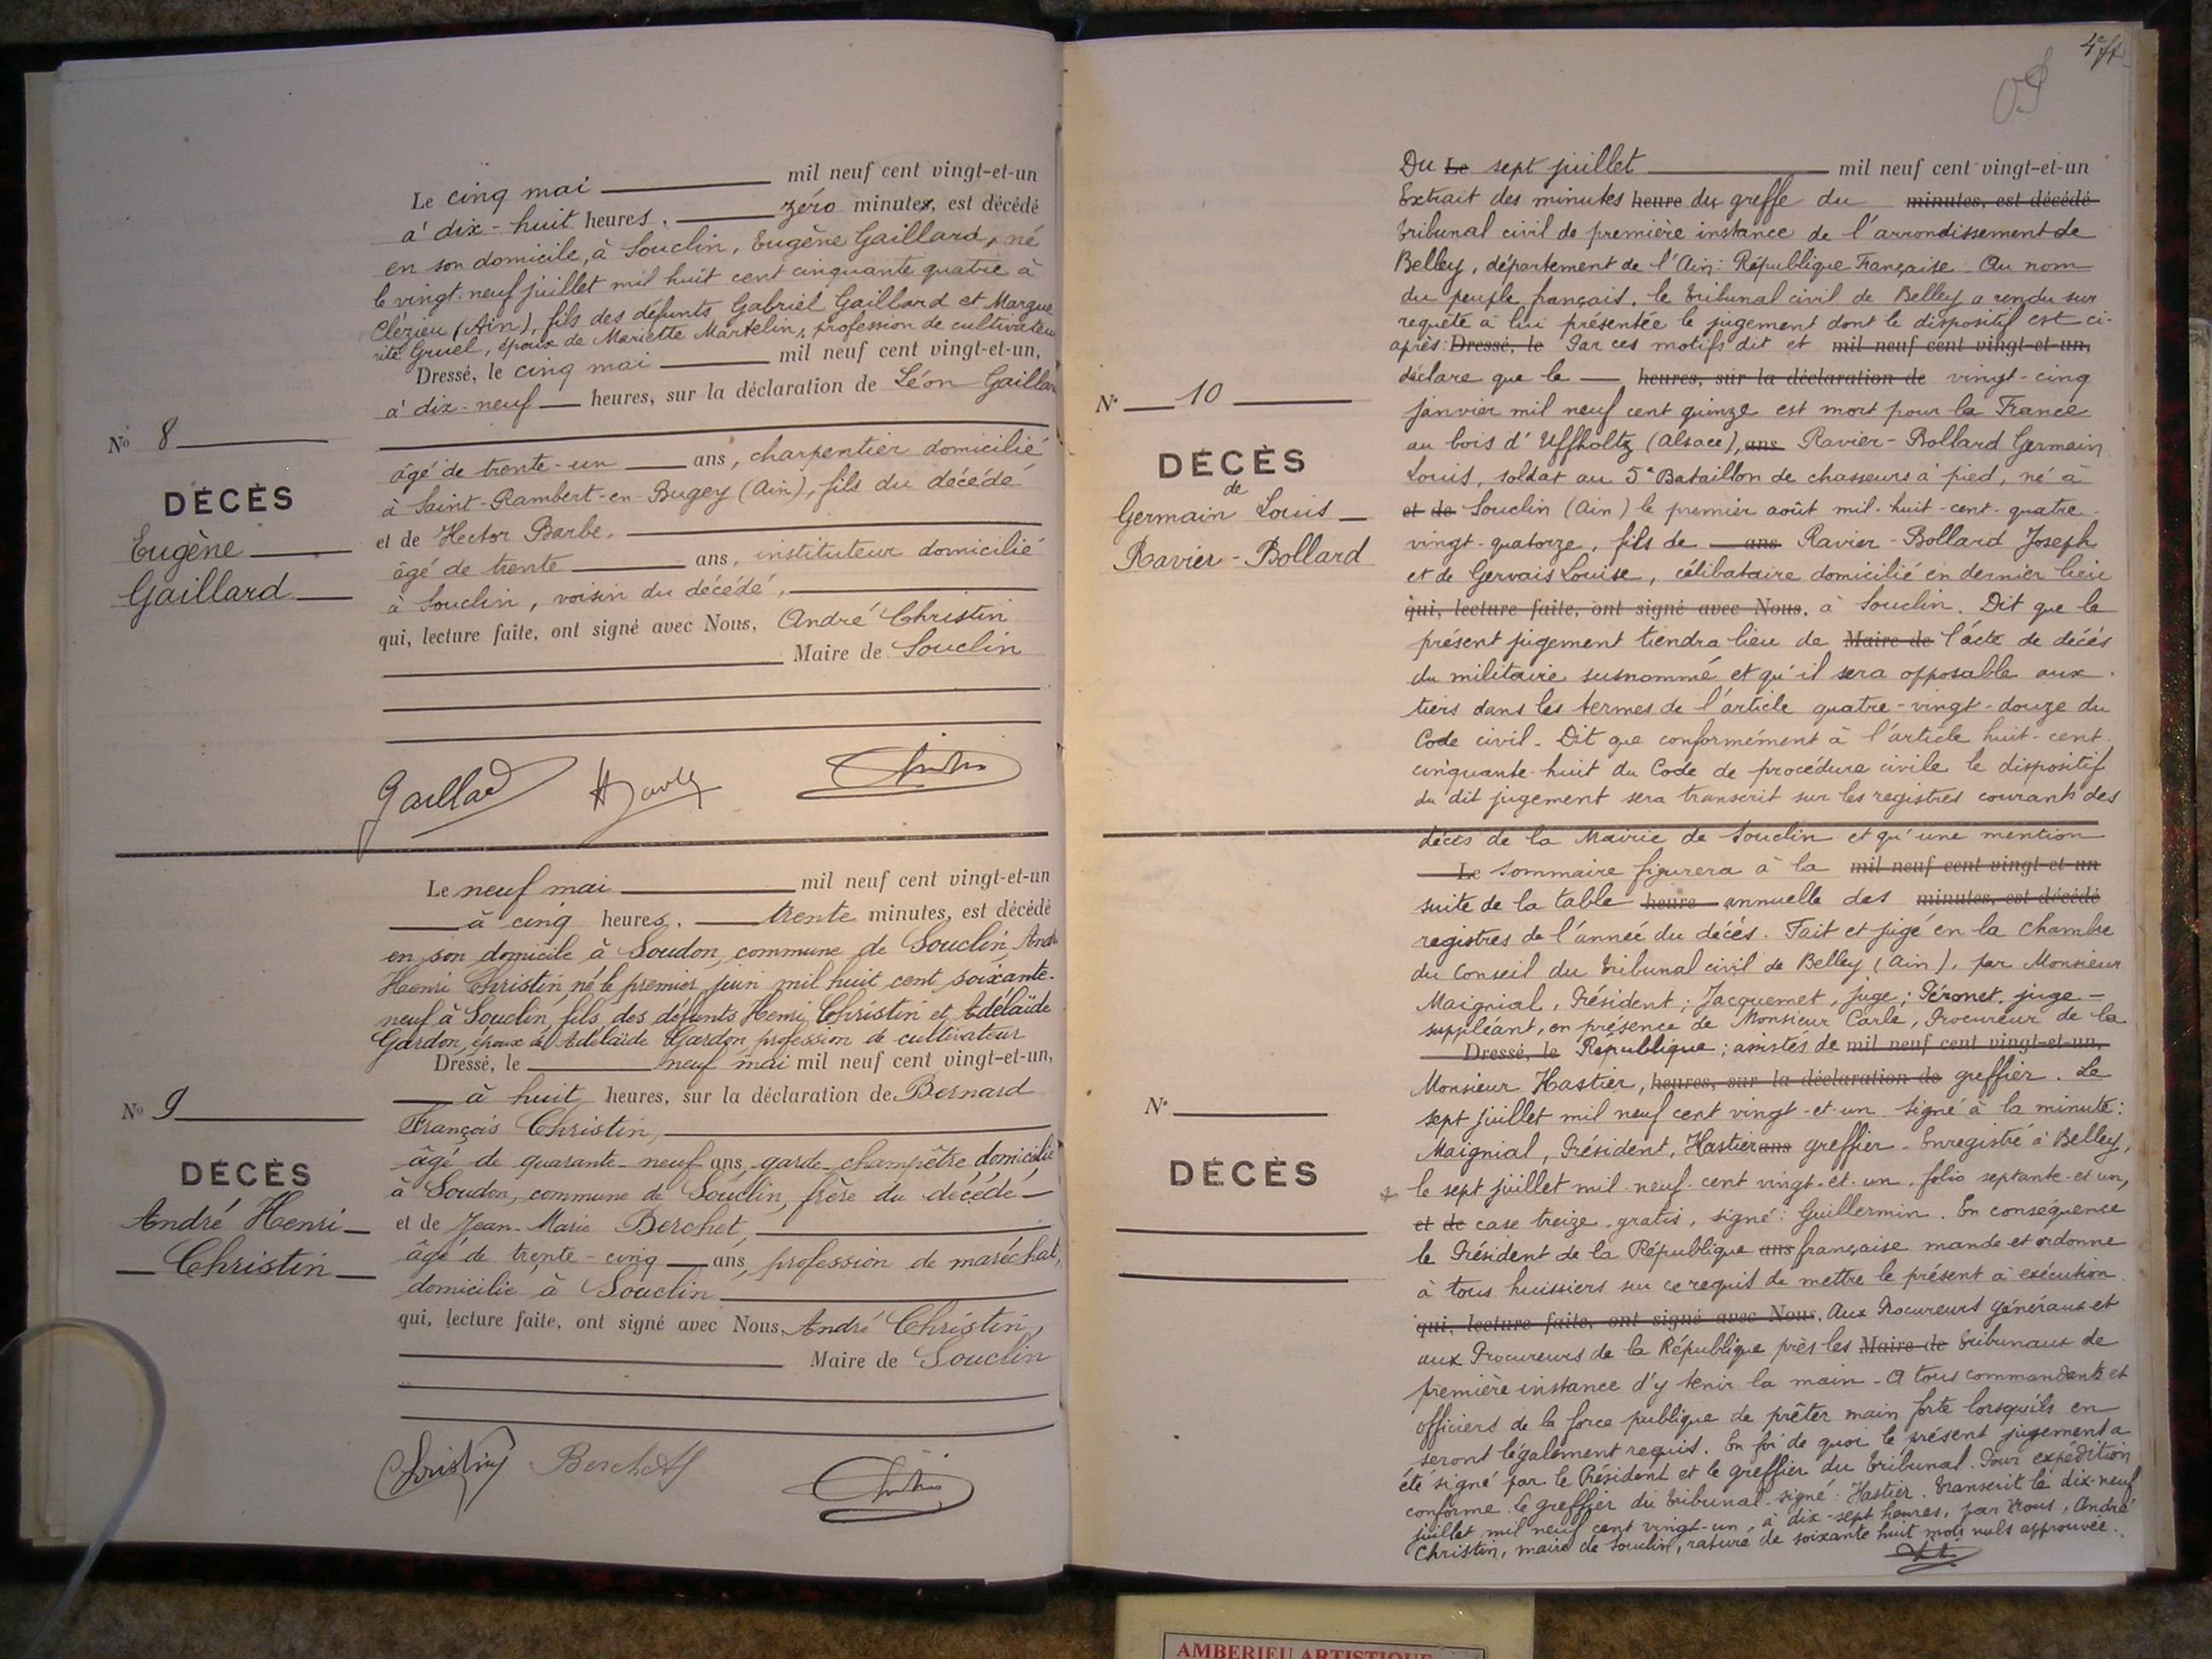 Le cinq mai mil neuf cent vingt-et-un
à dix-huit heures, zéro minutes, est décédé
en son domicile, à Souclin, Eugène Gaillard, né
le vingt-neuf juillet mil huit cent cinquante quatre à
Clézieu (Ain), fils des défunts Gabriel Gaillard et Margue
rite Gruel, époux de Mariette Martelin, profession de cultivateur
Dressé, le cinq mai mil neuf cent vingt-et-un,
à dix-neuf heures, sur la déclaration de Léon Gaillard
No 8
DÉCÈS
Eugène
Gaillard
âgé de trente-un ans, charpentier domicilié
à Saint-Rambert-en-Bugey (Ain), fils du décédé
et de Hector Barbe,
âgé de trente ans, instituteur domicilié
à Souclin, voisin du décédé,
qui, lecture faite, ont signé avec Nous, André Christin
Maire de Souclin
Gaillard
Le neuf mai mil neuf cent vingt-et-un
à cinq heures, trente minutes, est décédé
en son domicile à Soudon, commune de Souclin, André
Henri Christin, né le premier juin mil huit cent soixante-
neuf à Souclin, fils des défunts Henri Christin et Adélaïde
Gardon, époux de Adélaïde Gardon, profession de cultivateur
Dressé, le neuf mai mil neuf cent vingt-et-un,
à huit heures, sur la déclaration de Bernard
François Christin,
No 9
DÉCÈS
André Henri
Christin
âgé de quarante-neuf ans, garde-champêtre domicilié
à Soudon, commune de Souclin, frère du décédé
et de Jean-Marie Berchet,
âgé de trente-cinq ans, profession de maréchal,
domicilié à Souclin
qui, lecture faite, ont signé avec Nous, André Christin,
Maire de Souclin
Christin Berchet
Du Le sept juillet mil neuf cent vingt-et-un
Extrait des minutes heure du greffe du minutes, est décédé
tribunal civil de première instance de l'arrondissement de
Belley, département de l'Ain: République Française. Au nom
du peuple français, le tribunal civil de Belley a rendu sur
requête à lui présentée le jugement dont le dispositif est ci-
après: Dressé, le Par ces motifs dit et mil neuf cent vingt-et-un,
déclare que le heures, sur la déclaration de vingt-cinq
janvier mil neuf cent quinze est mort pour la France
au bois d'Uffholtz (Alsace), ans Ravier-Bollard Germain
Louis, soldat au 5e Bataillon de chasseurs à pied, né à
et de Souclin (Ain) le premier août mil-huit-cent-quatre-
vingt-quatorze, fils de ans Ravier-Bollard Joseph
et de Gervais Louise, célibataire domicilié en dernier lieu
qui, lecture faite, ont signé avec Nous, à Souclin. Dit que le
présent jugement tiendra lieu de Maire de l'acte de décès
du militaire susnommé et qu'il sera opposable aux
tiers dans les termes de l'article quatre-vingt-douze du
Code civil. Dit que conformément à l'article huit-cent
cinquante-huit du Code de procédure civile le dispositif
du dit jugement sera transcrit sur les registres courants des
N° 10
DÉCÈS
de
Germain Louis
Ravier-Bollard
décès de la Mairie de Souclin et qu'une mention
Le sommaire figurera à la mil neuf cent vingt-et-un
suite de la table heure annuelle des minutes, est décédé
registres de l'année du décès. Fait et jugé en la chambre
du Conseil du tribunal civil de Belley (Ain), par Monsieur
Maignial, Président; Jacquemet, juge; Péronet, juge-
suppléant, en présence de Monsieur Carle, Procureur de la
Dressé, le République; assistés de mil neuf cent vingt-et-un,
Monsieur Hastier, heures, sur la déclaration de greffier. Le
sept juillet mil neuf cent vingt-et-un signé à la minute:
Maignial, Président, Hastier ans greffier. Enregistré à Belley,
le sept juillet mil-neuf-cent vingt-et-un, folio septante-et-un,
et de case treize, gratis, signé: Guillermin. En conséquence
le Président de la République ans française mande et ordonne
à tous huissiers sur ce requis de mettre le présent à exécution.
qui, lecture faite, ont signé avec Nous, Aux Procureurs généraux et
aux Procureurs de la République près les Maire de tribunaux de
première instance d'y tenir la main. A tous commandants et
officiers de la force publique de prêter main forte lorsqu'ils en
seront légalement requis. En foi de quoi le présent jugement a
été signé par le Président et le greffier du tribunal. Pour expédition
conforme. le greffier du tribunal. signé: Hastier. transcrit le dix-neuf
juillet mil neuf cent vingt-un, à dix-sept heures, par Nous, André
Christin, maire de Souclin, rature de soixante huit mots nuls approuvée.
N°
DÉCÈS
AMBERIEU ARTISTIQUE